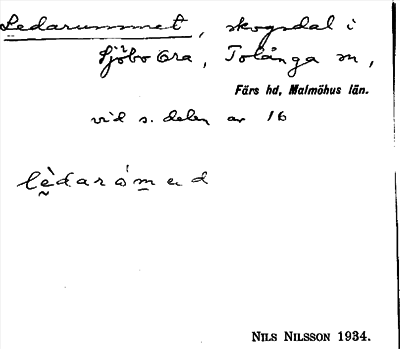 Ledarummet, skogsdal i
Sjöbo Ora, Tolånga sn,
Färs hd, Malmöhus län.
vid s. delen av 16
lèdaróməd
NILS NILSSON 1934.